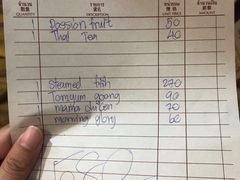 จำนวน รายการ หน่วยละ จำนวนเงิน
QUANTITY DESCRIPTION UNIT PRICE AMOUNT
1 Passion fruit 50
1 Thai Tea 40
1 Steamed fish 270
1 Tomyum goong 90
1 mama 70
1 morning glory 60